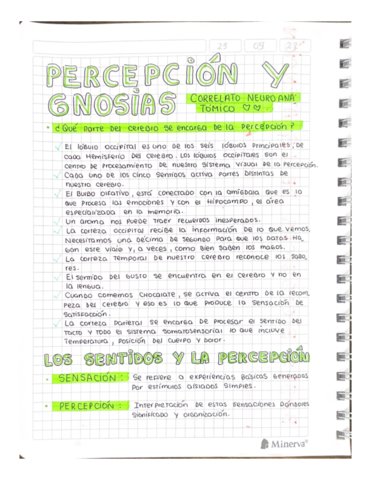 25 09 23
PERCEPCIÓN Y
GNOSIAS CORRELATO NEUROANA
TÓMICO ♡♡
¿Qué parte del cerebro se encarga de la percepción?
El lóbulo occipital es uno de los seis lóbulos principales, de
cada hemisferio del cerebro. Los lóbulos occipitales son el
centro de procesamiento de nuestro sistema visual de la percepción.
Cada uno de los cinco sentidos activa partes distintas de
nuestro cerebro.
El Bulbo olfativo, está conectado con la amígdala que es lo
que procesa las emociones y con el hipocampo, el área
especializada en la memoria.
Un aroma nos puede traer recuerdos inesperados.
La corteza occipital recibe la información de lo que vemos.
Necesitamos una décima de segundo para que los datos ha
gan este viaje y, a veces, como bien saben los magos.
La corteza temporal de nuestro cerebro reconoce los soni
res.
El sentido del gusto se encuentra en el cerebro y no en
la lengua.
Cuando comemos chocolate, se activa el centro de la recom
peza del cerebro y eso es lo que produce la sensación de
satisfacción.
La corteza parietal se encarga de procesar el sentido del
tacto y todo el sistema somatosensorial lo que incluye
temperatura, posición del cuerpo y dolor.
LOS SENTIDOS Y LA PERCEPCIÓN
SENSACIÓN: Se refiere a experiencias básicas generadas
por estímulos aislados simples.
PERCEPCIÓN: Interpretación de estas sensaciones dándoles
significado y organización.
Minerva